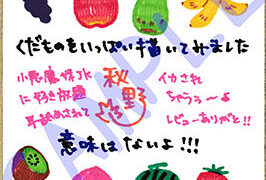 くだものをいっぱい描いてみました
小悪魔妹JK
に好き放題
耳舐めされて
秋野
イカされ
ちゃうっ〜よ
レビューありがとう!!
意味はないよ!!!
SAMPLE